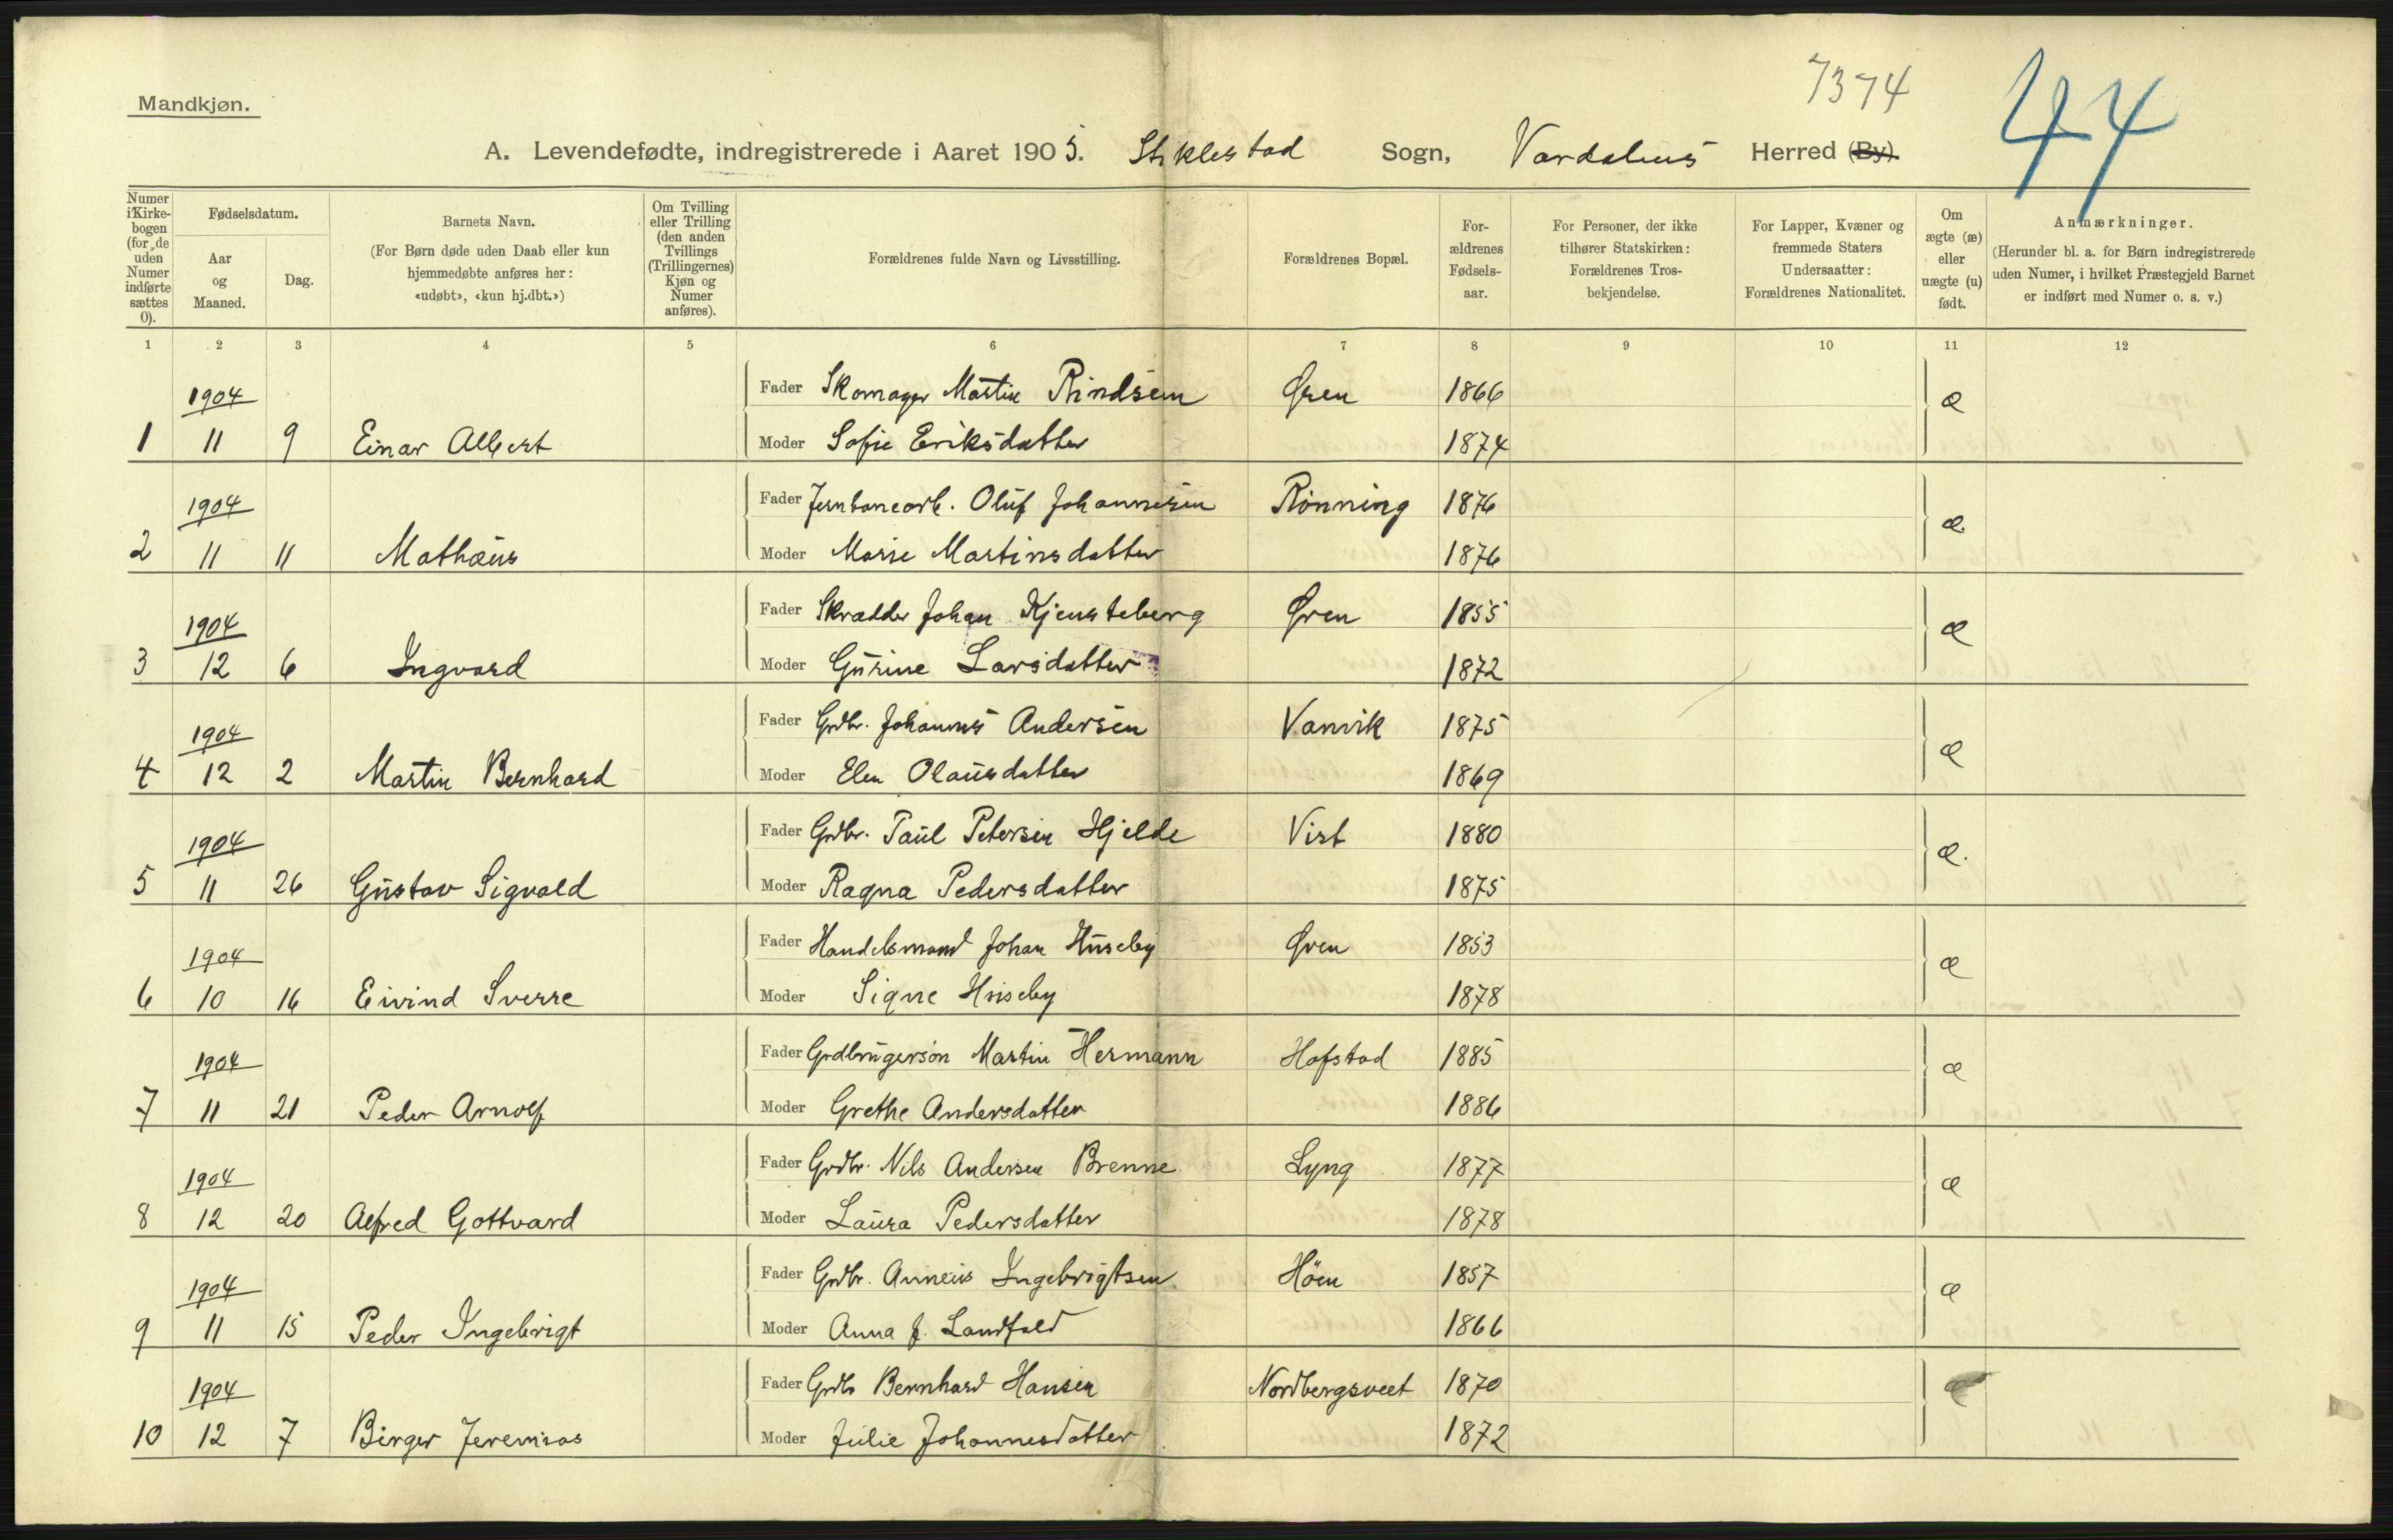 7374
44
Mandkjøn.
A. Levendefødte, indregistrerede i Aaret 1905. Stiklestad Sogn, Værdalens Herred (By).
Numer i Kirkebogen (for de uden Numer indførte sættes 0).
Fødselsdatum.
Aar og Maaned.
Dag.
Barnets Navn.
(For Børn døde uden Daab eller kun hjemmedøbte anføres her: «udøbt», «kun hj.dbt.»)
Om Tvilling eller Trilling (den anden Tvillings (Trillingernes) Kjøn og Numer anføres).
Forældrenes fulde Navn og Livsstilling.
Forældrenes Bopæl.
For-ældrenes Fødsels-aar.
For Personer, der ikke tilhører Statskirken: Forældrenes Tros-bekjendelse.
For Lapper, Kvæner og fremmede Staters Undersaatter: Forældrenes Nationalitet.
Om ægte (æ) eller uægte (u) født.
Anmærkninger.
(Herunder bl. a. for Børn indregistrerede uden Numer, i hvilket Præstegjeld Barnet er indført med Numer o. s. v.)
1 2 3 4 5 6 7 8 9 10 11 12
1904 Fader Skomager Martin Rindsem Øren 1866 æ
1 11 9 Einar Albert Moder Sofie Eriksdatter 1874
1904 Fader Jernbanearb. Oluf Johannesen Rönning 1876 æ.
2 11 11 Mathæus Moder Marie Martinsdatter 1876
1904 Fader Skrædder Johan Kjensteberg Øren 1855 æ
3 12 6 Ingvard Moder Gurine Larsdatter 1872
1904 Fader Grdbr. Johannes Andersen Vanvik 1875 æ
4 12 2 Martin Bernhard Moder Elen Olausdatter 1869
1904 Fader Grdbr. Paul Petersen Hjelde Vist 1880 æ.
5 11 26 Gustav Sigvald Moder Ragna Pedersdatter 1875
1904 Fader Handelsmand Johan Huseby Øren 1853 æ
6 10 16 Eivind Sverre Moder Signe Huseby 1878
1904 Fader Grdbrugersön Martin Hermann Hofstad 1885 æ
7 11 21 Peder Arnolf Moder Grethe Andersdatter 1886
1904 Fader Grdbr. Nils Andersen Brenne Lyng 1877 æ
8 12 20 Alfred Gottvard Moder Laura Pedersdatter 1878
1904 Fader Grdbr. Anneus Ingebrigtsen Höen 1857 æ
9 11 15 Peder Ingebrigt Moder Anna J. Landfald 1866
1904 Fader Grdbr Bernhard Hansen Nordbergsveet 1870 æ
10 12 7 Birger Jeremias Moder Julie Johannesdatter 1872